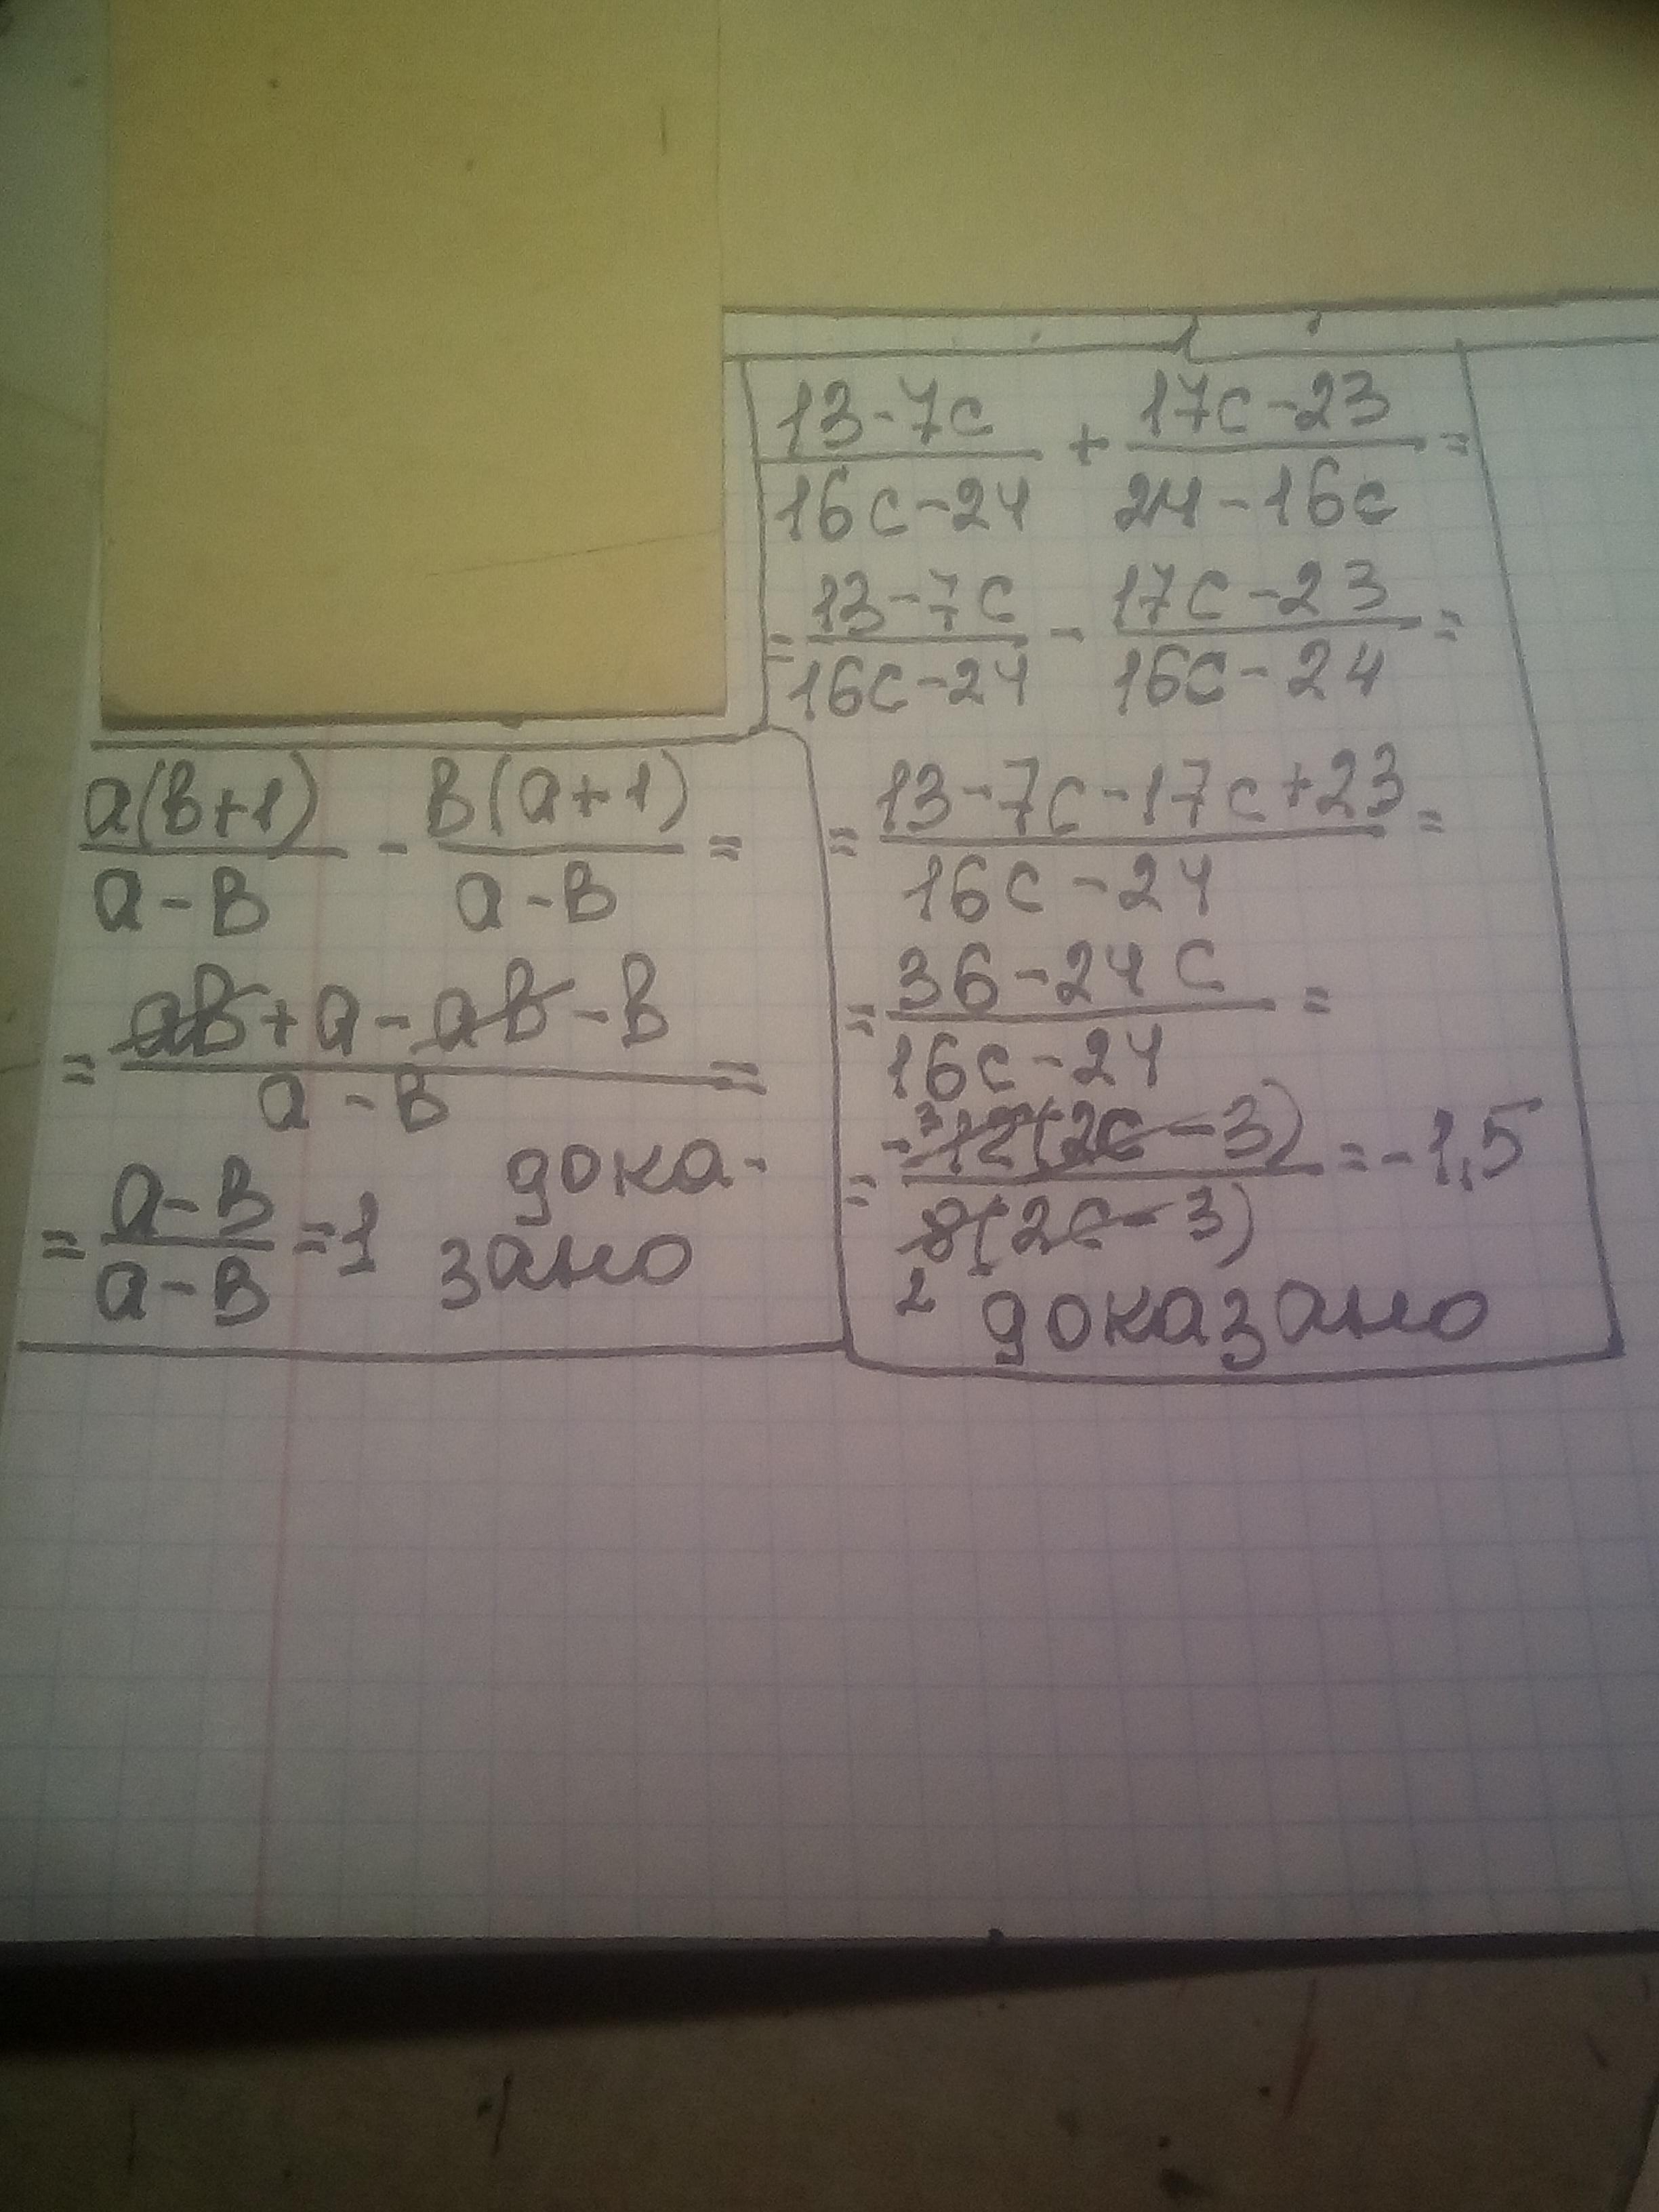 13-7c/16c-24 + 17c-23/24-16c =
= 13-7c/16c-24 - 17c-23/16c-24 =
= 13-7c-17c+23/16c-24 =
= 36-24c/16c-24 =
= -12(2c-3)/8(2c-3) = -1,5
3
2
доказано
a(в+1)/a-в - в(a+1)/a-в =
= aв+a-aв-в/a-в =
= a-в/a-в = 1 дока-
зано